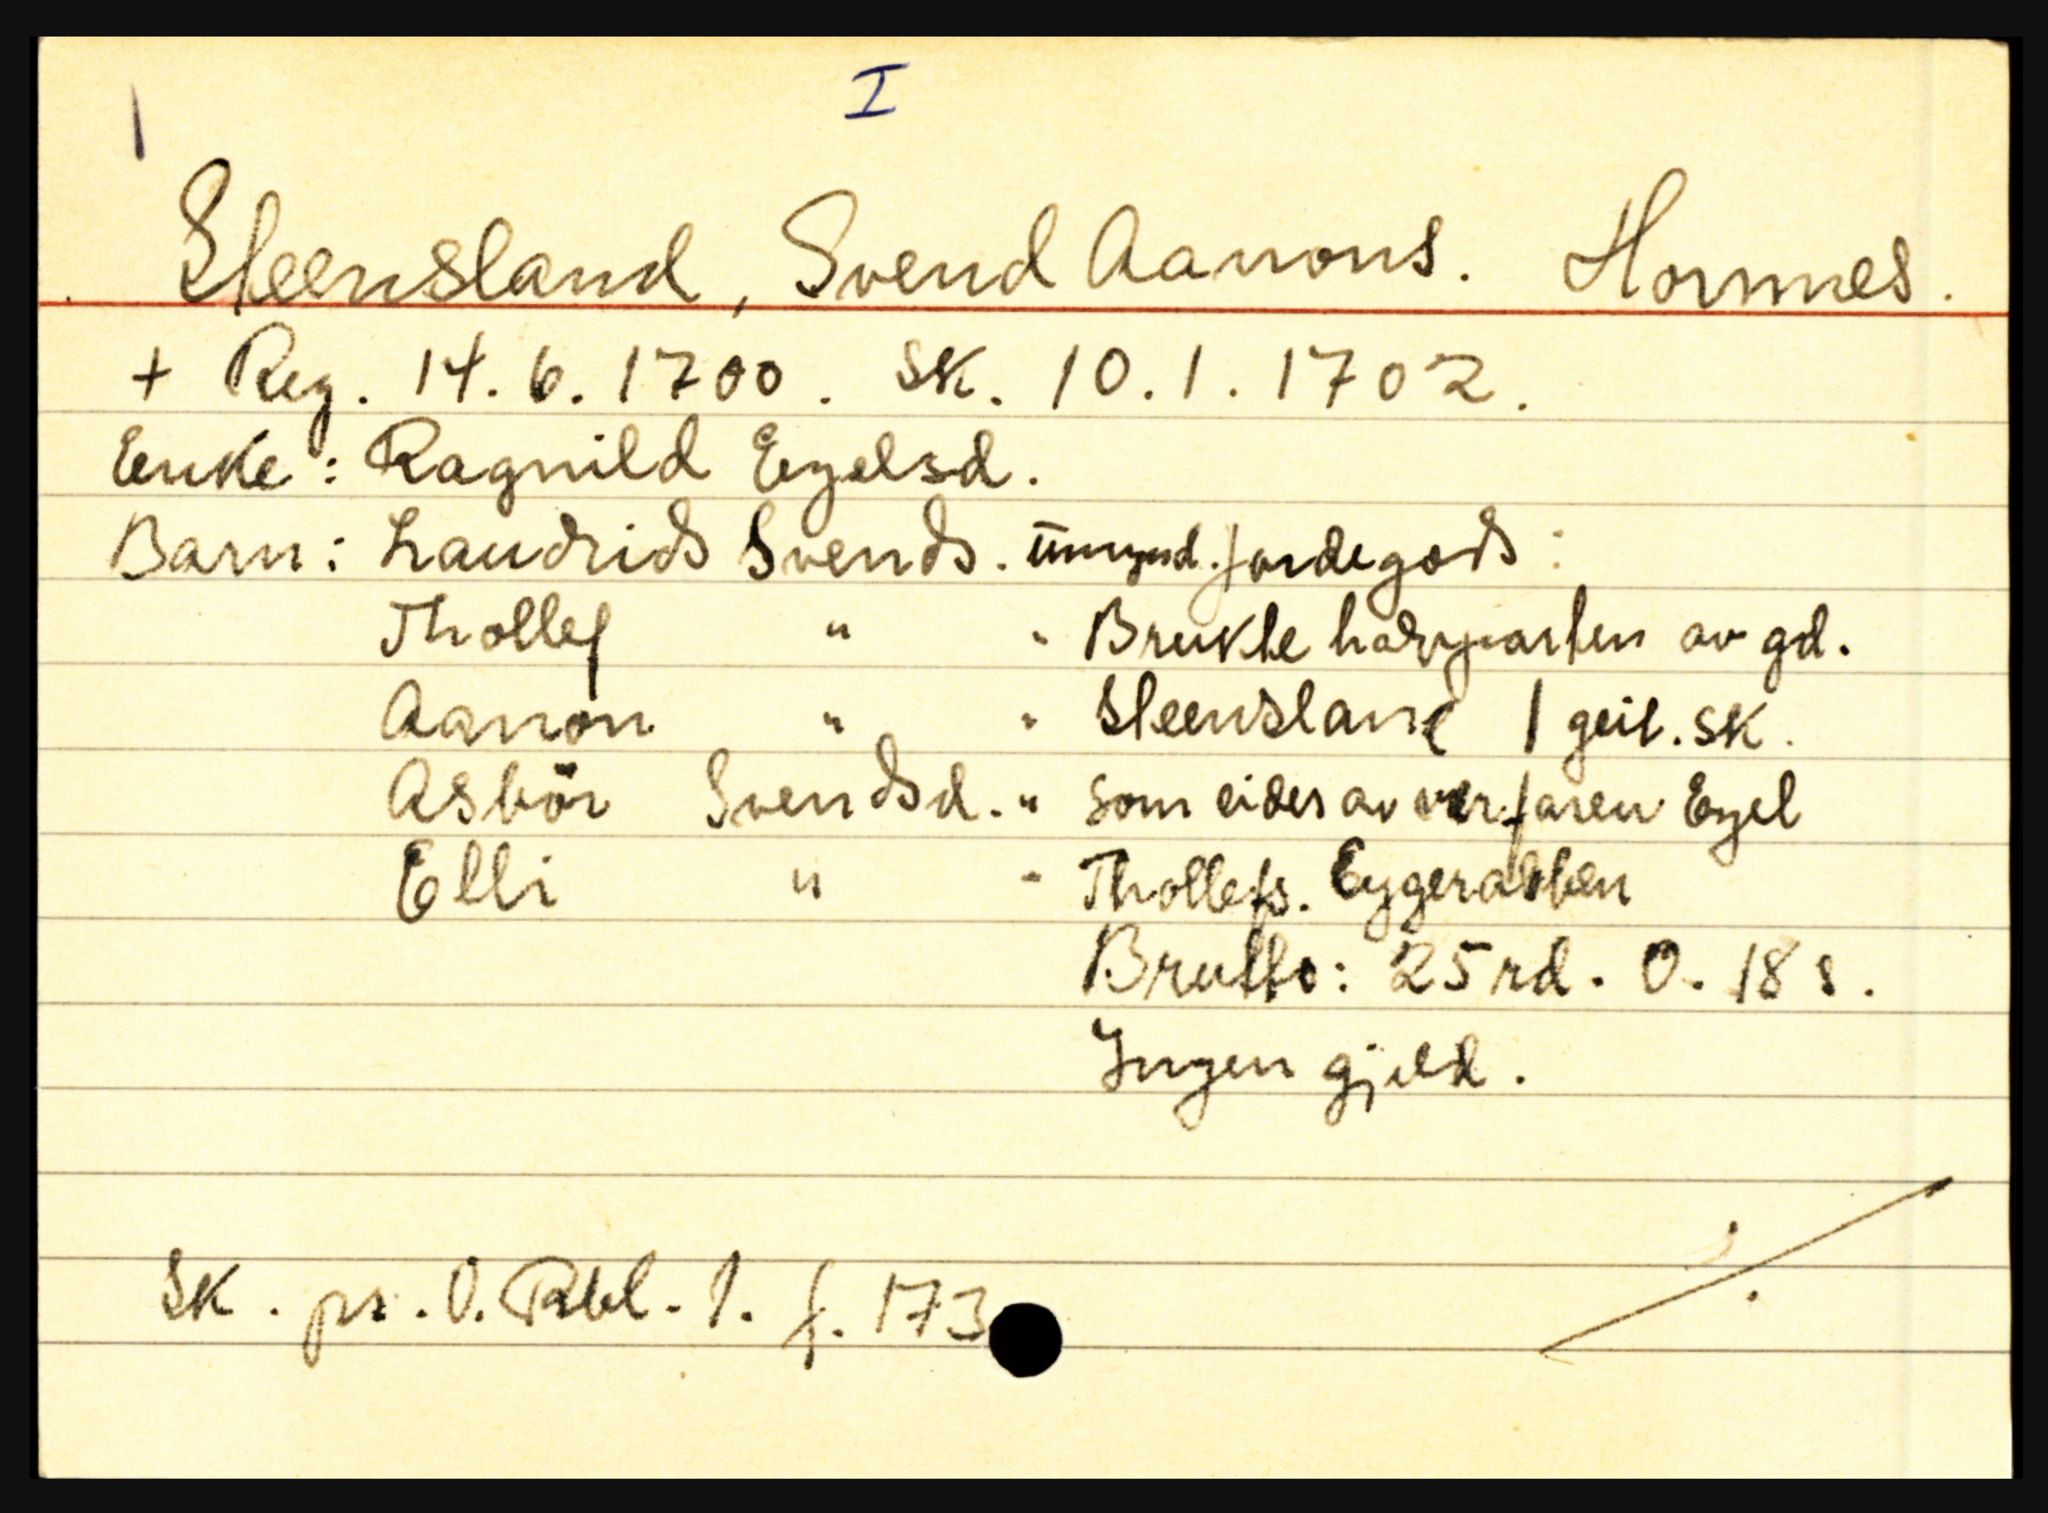 I
Steensland, Svend Aanons. Hornnes.
+ Reg. 14.6.1700. Sk. 10.1.1702.
Enke: Ragnild Egelsd.
Barn: Laudrids Svends. Umynd. Jordegods:
Thollef " " Brukte halvparten av gd.
Aanon " " Steensland 1 geit. sk.
Asbör Svendsd. " som eides av verfaren Egel
Elli " " Thollefs. Eygerabben
Brutto: 25 rd. 0. 18 s.
Ingen gjeld.
Sk. pr. O. Rbl. 1. f. 173